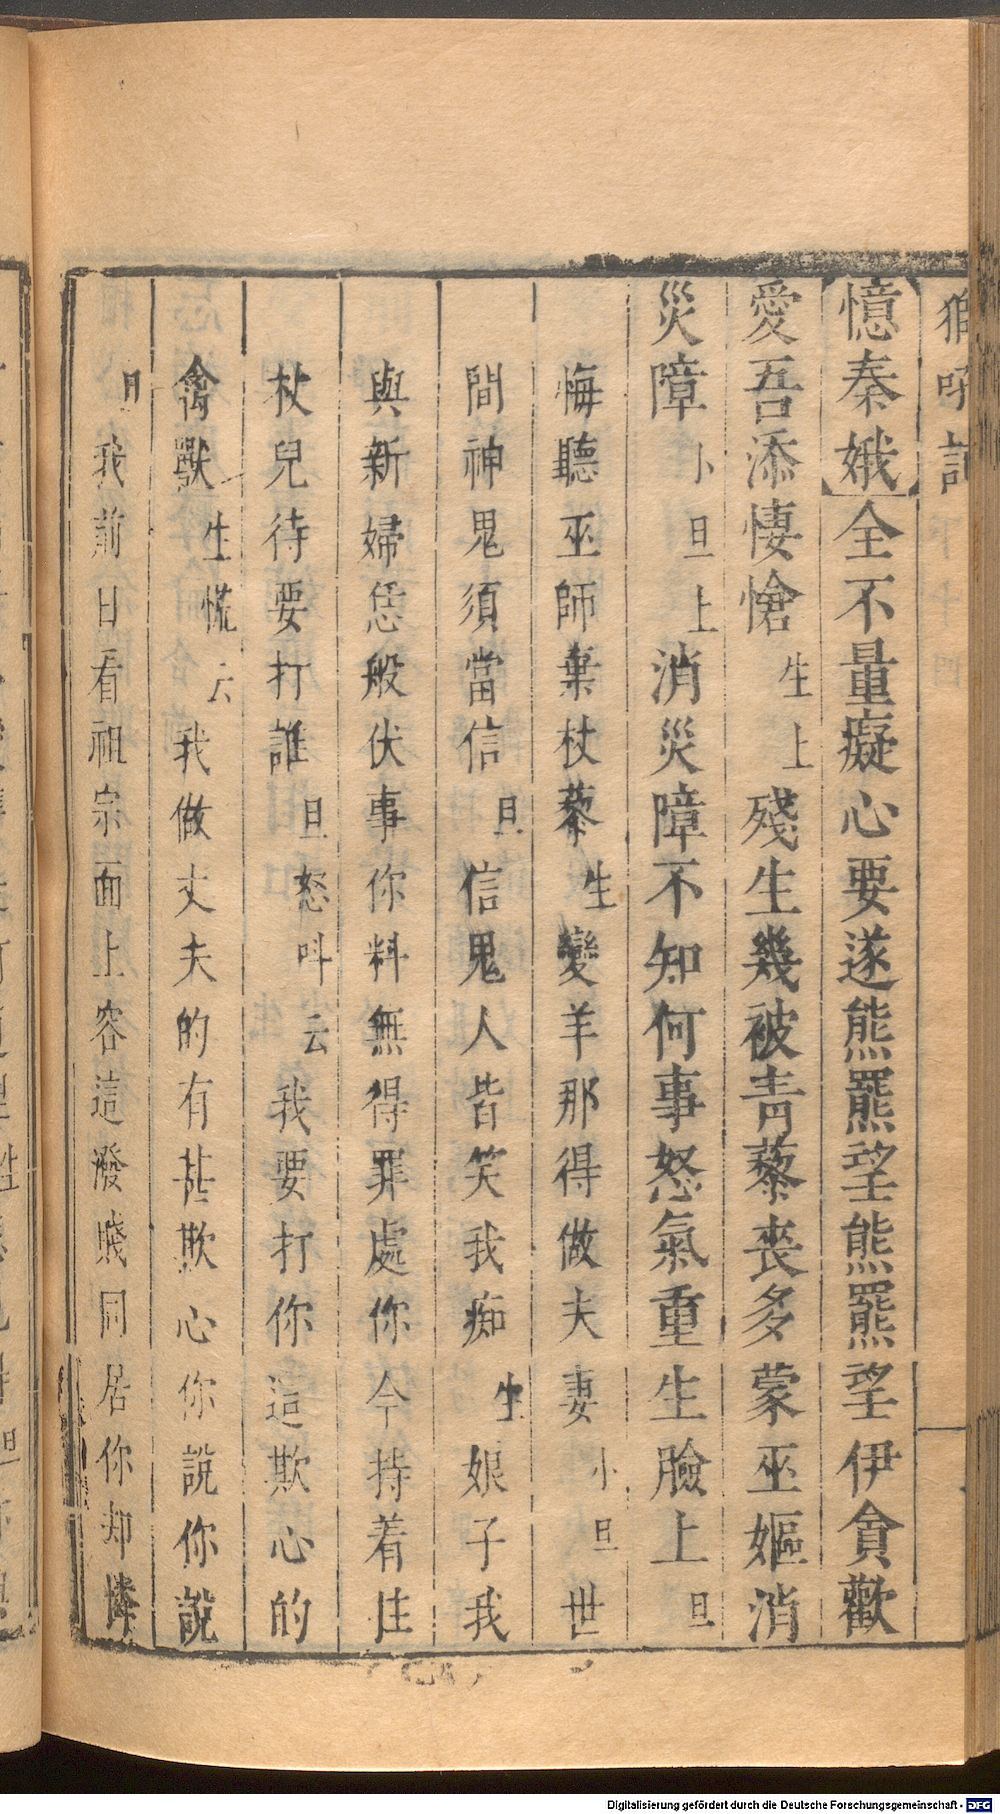 獅吼記
憶秦娥全不量癡心要遂熊羆望熊羆望伊貪歡
愛吾添悽愴生上殘生幾被青藜喪多蒙巫嫗消
災障小旦上消災障不知何事怒氣重生臉上旦
悔聽巫師棄杖藜生變羊那得做夫妻小旦世
間神鬼須當信旦信鬼人皆笑我痴生娘子我
與新婦恁般伏事你料無得罪處你今持着拄
杖兒待要打誰旦怒呌云我要打你這欺心的
禽獸生慌云我做丈夫的有甚欺心你說你說
旦我前日看祖宗面上容這潑賤同居你却憐
Digitalisierung gefördert durch die Deutsche Forschungsgemeinschaft - DFG